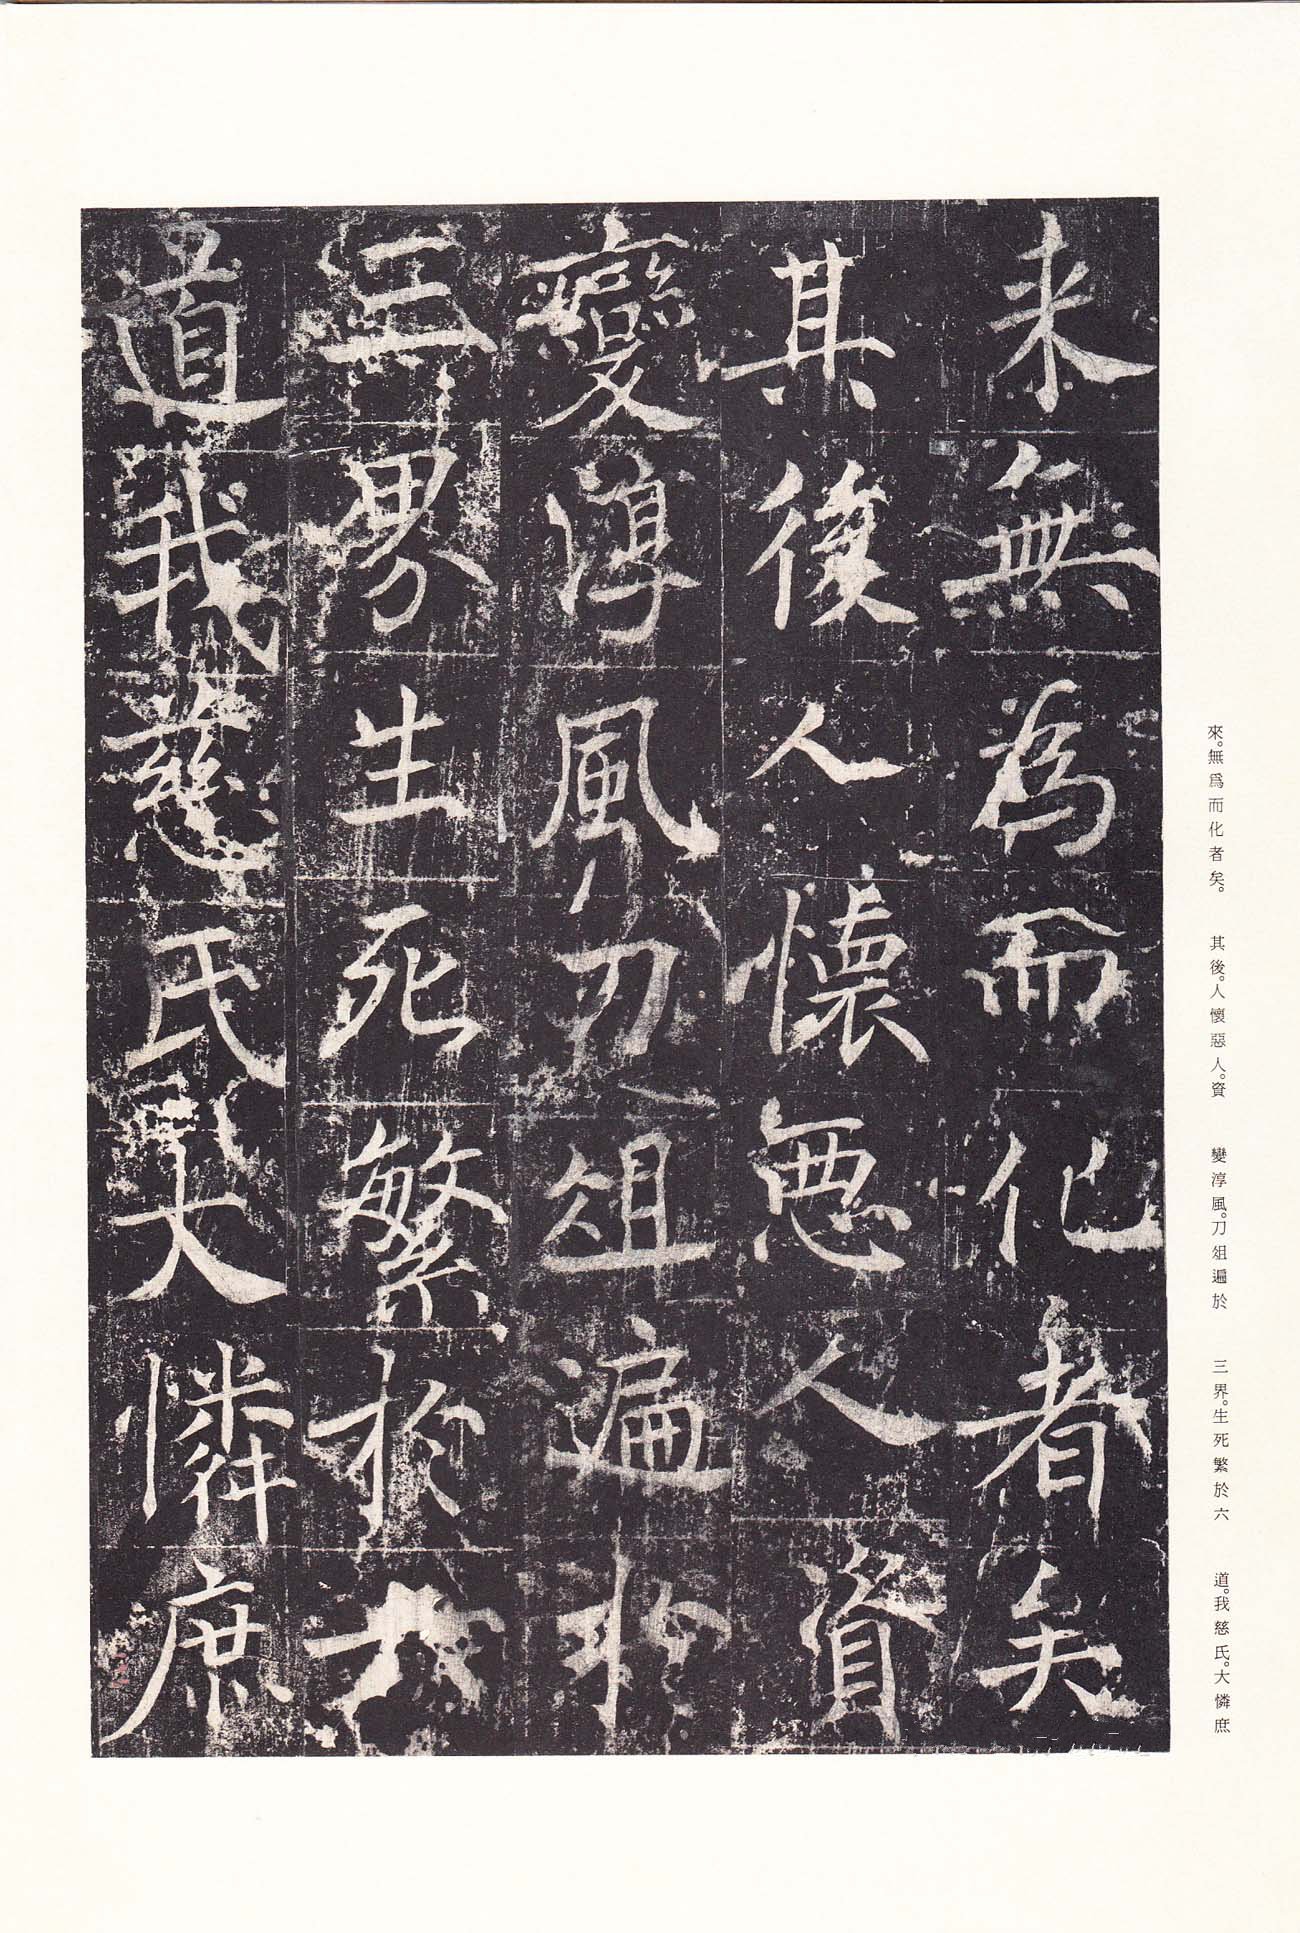 來。無爲而化者矣。 其後。人懷惡人。資 變淳風。刀俎遍於 三界。生死繁於六 道。我慈氏。大憐庶
来無為而化者矣
其後人懷惡人資
變淳風刀俎遍於
三界生死繁於六
道我慈氏大憐庶